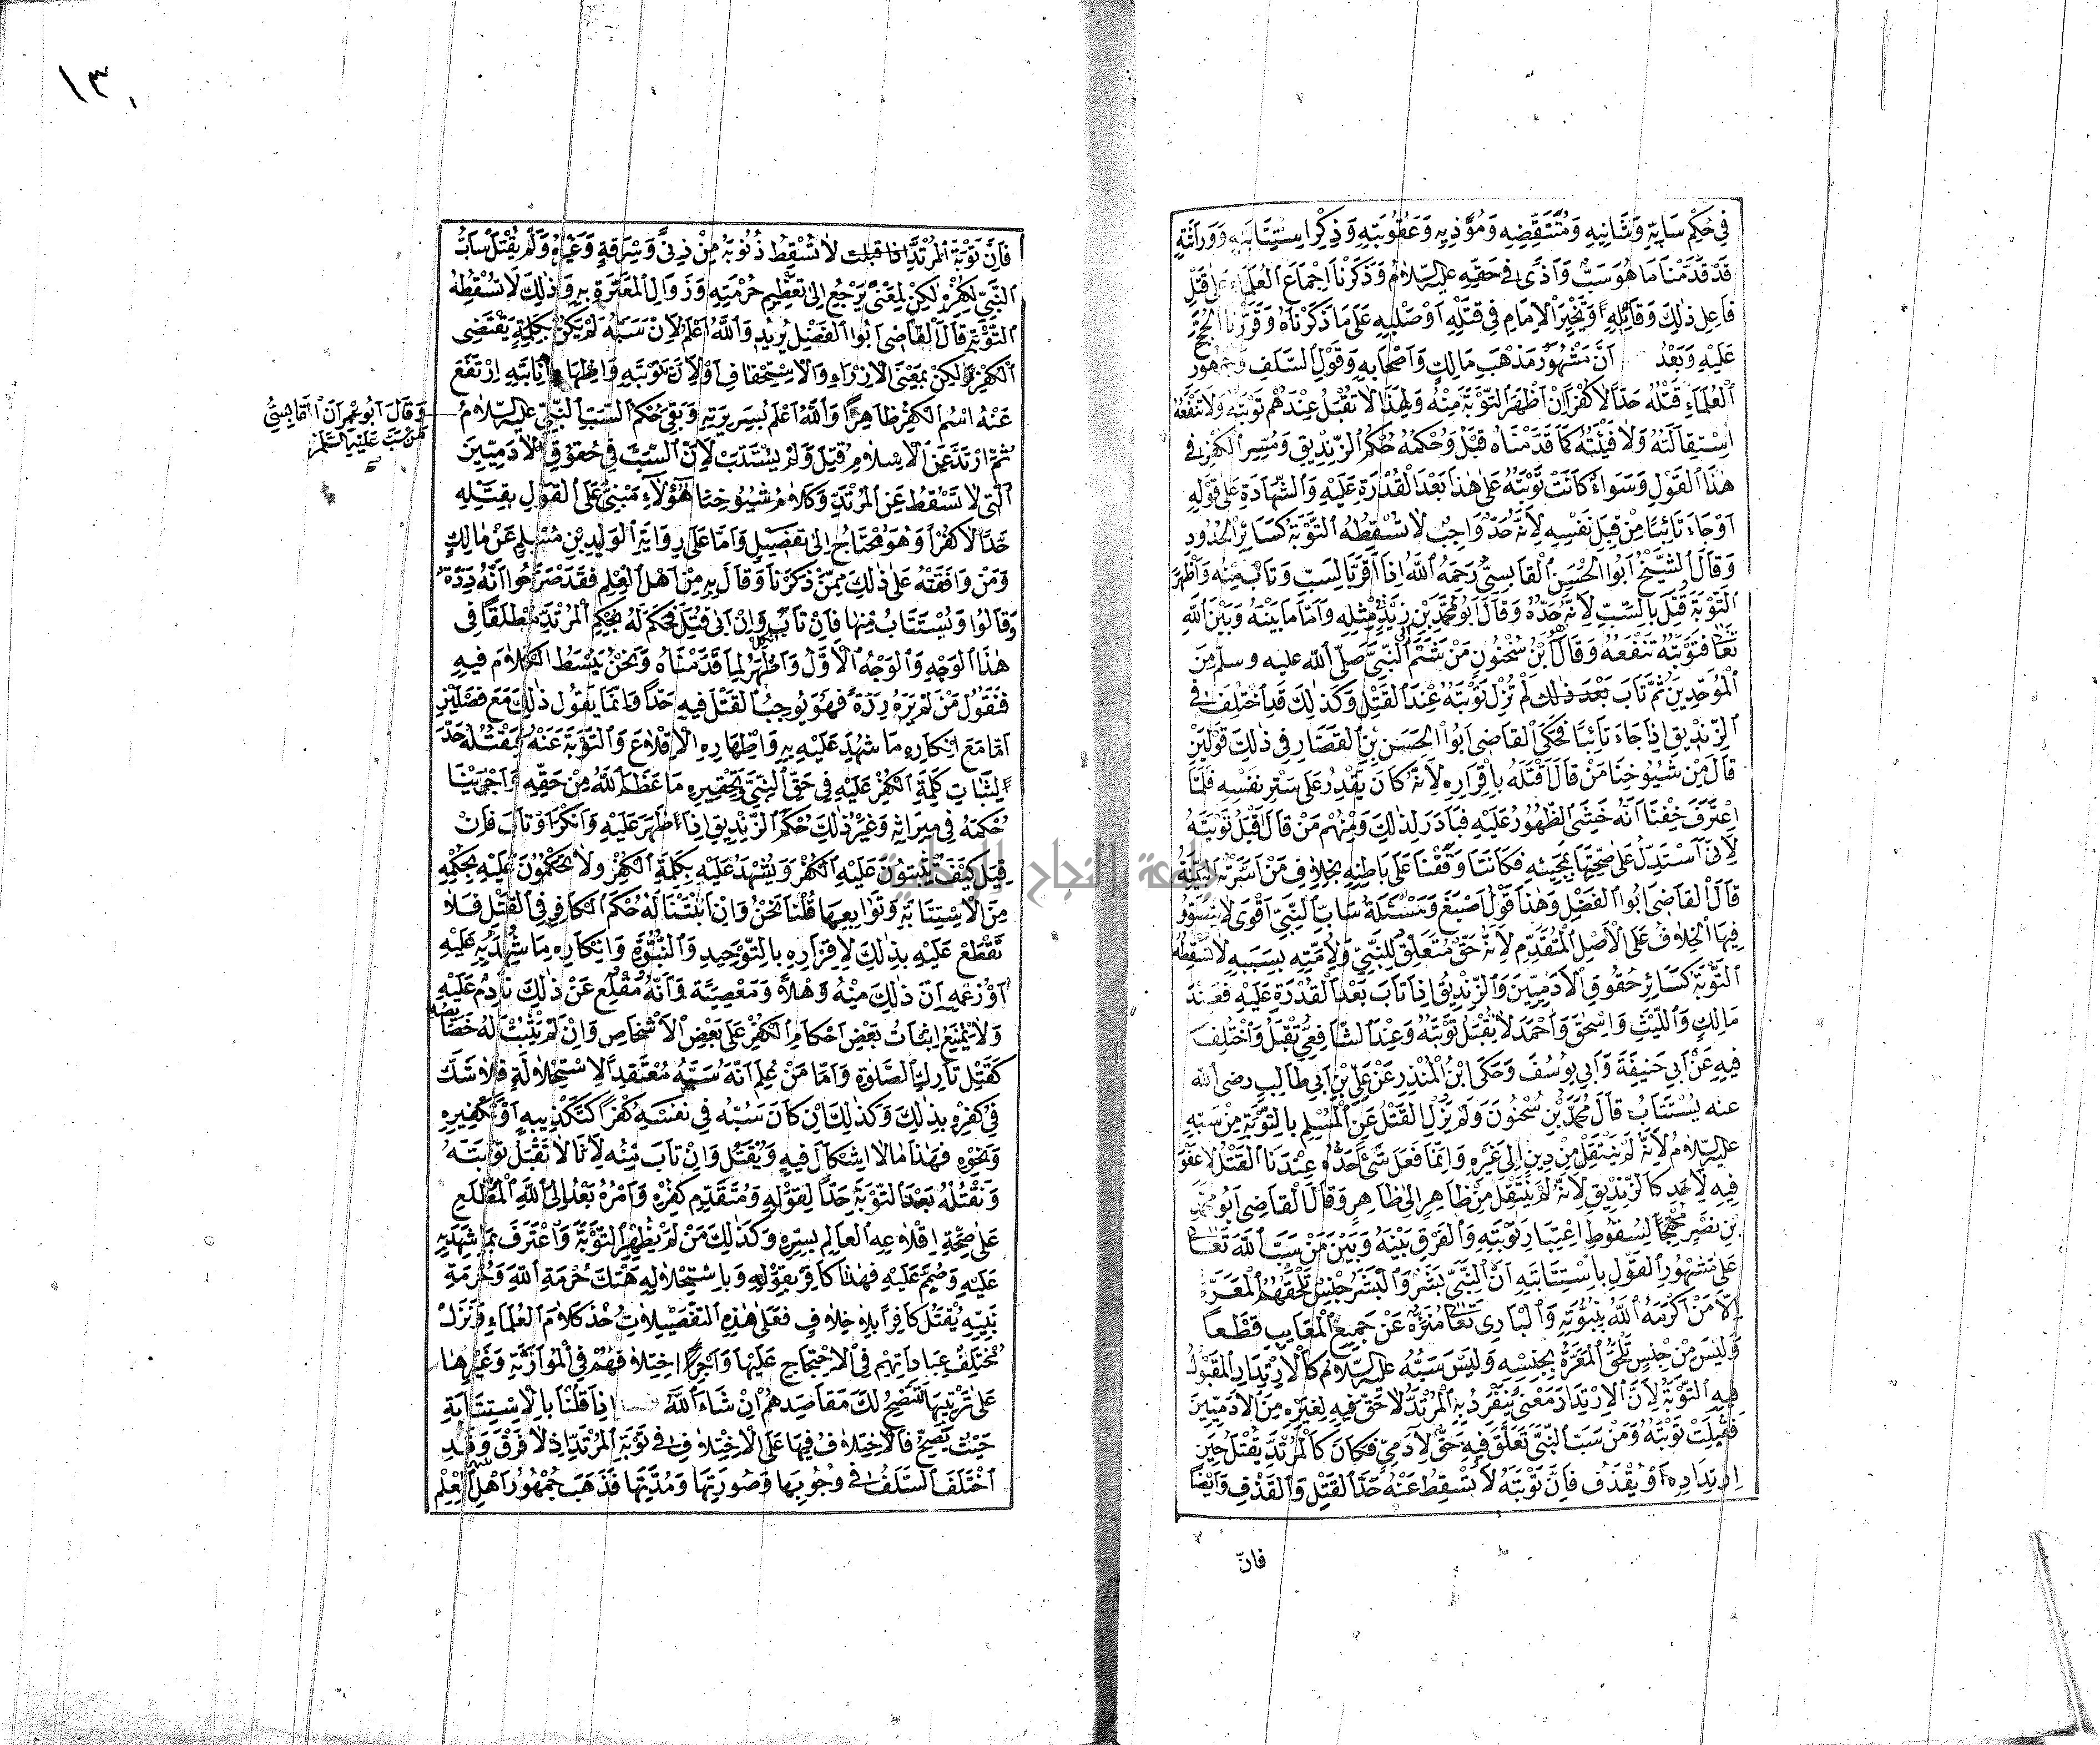 في حكم سابه وشانيه ومتنقصه ومؤذيه وعقوبته وذكر استتابته ووراثته
قد قدمنا ما هو سب واذى في حقه عليه السلام وذكرنا اجماع العلماء على قتل
فاعل ذلك وقائله او تخيير الامام في قتله او صلبه على ما ذكرناه وقررنا الحجج
عليه وبعد ان مشهور مذهب مالك واصحابه وقول السلف وجمهور
العلماء قتله حدا لا كفرا ان اظهر التوبة منه ولهذا لا تقبل عندهم توبته ولا تنفعه
استقالته ولا فيئته كما قدمناه قبل وحكمه حكم الزنديق ومسر الكفر في
هذا القول وسواء كانت توبته على هذا بعد القدرة عليه والشهادة على قوله
او جاء تائبا من قبل نفسه لانه حد واجب لا تسقطه التوبة كسائر الحدود
وقال الشيخ ابوا الحسن القابسي رحمه الله اذا اقر بالسب وتاب منه واظهر
التوبة قتل بالسب لانه حده وقال ابو محمد بن زيد مثله واما ما بينه وبين الله
تعا فتوبته تنفعه وقال ابن سحنون من شتم النبي صلى الله عليه وسلم من
الموحدين ثم تاب بعد ذلك لم تزل توبته عند القتل وكذلك قد اختلف في
الزنديق اذا جاء تائبا فحكى القاضي ابوا الحسن بن القصار في ذلك قولين
قال من شيوخنا من قال اقتله باقراره لانه كان يقدر على ستر نفسه فلما
اعترف خفنا انه خشي الظهور عليه فبادر لذلك ومنهم من قال اقبل توبته
لاني استدل على صحتها بمجيئه فكاننا وقفنا على باطنه بخلاف من اسرته البينة
قال القاضي ابوا الفضل وهذا قول اصبغ ومسئلة ساب النبي اقوى لا يتصور
فيها الخلاف على الاصل المتقدم لانه حق متعلق للنبي ولامته بسببه لا تسقطه
التوبة كسائر حقوق الادميين والزنديق اذا تاب بعد القدرة عليه فعند
مالك والليث واسحق واحمد لا يقبل توبته وعند الشافعي تقبل واختلف
فيه عن ابي حنيفة وابي يوسف وحكى ابن المنذر عن علي بن ابي طالب رضي الله
عنه يستتاب قال محمد بن سحنون ولم يزل القتل عن المسلم بالتوبة من سبه
عليه السلام لانه لم ينتقل من دين الى غيره وانما فعل شيئا حده عندنا القتل لا عفو
فيه لاحد كالزنديق لانه لم ينتقل من ظاهر الى ظاهر وقال القاضي ابو محمد
بن نصر محتجا لسقوط اعتبار توبته والفرق بينه وبين من سب الله تعا
على مشهور القول باستتابته ان النبي بشر والبشر جنس تلحقهم المعرة
الا من اكرمه الله بنبوته والبارى تعا منزه عن جميع المعايب قطعا
وليس من جنس تلحق المعرة بجنسه وليس سبه عليه السلام كالارتداد المقبول
فيه التوبة لان الارتداد معنى ينفرد به المرتد لا حق فيه لغيره من الادميين
فقبلت توبته ومن سب النبي تعلق فيه حق لآدمي فكان كالمرتد يقتل حين
ارتداده او يقذف فان توبته لا تسقط عنه حد القتل والقذف وايضا
فان
١٣٠
فان توبة المرتد اذا قبلت لا تسقط ذنوبه من زنى وسرقة وغيره ولم يقتل ساب
النبي لكفره لكن لمعنى يرجع الى تعظيم حرمته وزوال المعرة به وذلك لا تسقطه
التوبة قال القاضي ابوا الفضل يريد والله اعلم لان سبه لم يكن بكلمة يقتضى
الكفر ولكن بمعنى الازراء والاستخفاف او لان توبته واظهار انابته ارتفع
عنه اسم الكفر ظاهرا والله اعلم بسريرته وبقى حكم السب النبي عليه السلام
وقال ابو عمران القابسي
من سب عليه السلم
ثم ارتد عن الاسلام قتل ولم يستتب لان السب في حقوق الادميين
التي لا تسقط عن المرتد وكلام شيوخنا هؤلاء مبني على القول بقتله
حدا لا كفرا وهو محتاج الى تفصيل واما على رواية الوليد بن مسلم عن مالك
ومن وافقته على ذلك ممن ذكرنا وقال به من اهل العلم فقد صرحوا انه ردة
وقالوا ويستتاب منها فان تاب نكل وان ابى قتل فحكم له بحكم المرتد مطلقا في
هذا الوجه والوجه الاول واظهر لما قدمناه ونحن نبسط الكلام فيه
فنقول من لم يره ردة فهو يوجب القتل فيه حدا وانما يقول ذلك مع فصلين
اما مع انكاره ما شهد عليه به واظهاره الاقلاع والتوبة عنه فيقتله حدا
لثبات كلمة الكفر عليه في حق النبي وتحقيره ما عظم الله من حقه واجرينا
حكمه في ميراثه وغير ذلك حكم الزنديق اذا ظهر عليه وانكر او تاب فان
قيل كيف تثبتون عليه الكفر ويشهد عليه بكلمة الكفر ولا تحكمون عليه بحكمه
من الاستتابة وتوابعها قلنا نحن وان اثبتنا له حكم الكافر في القتل فلا
نقطع عليه بذلك لاقراره بالتوحيد والنبوة وانكاره ما شهد به عليه
او زعمه ان ذلك منه وهلا ومعصية وانه مقلع عن ذلك نادم عليه
ولا يمنع اثبات بعض احكام الكفر على بعض الاشخاص وان لم يثبت له خصائصه
كقتل تارك الصلوة واما من علم انه سبه معتقدا لاستحلاله فلا شك
في كفره بذلك وكذلك ان كان سبه في نفسه كفرا كتكذيبه او تكفيره
ونحوه فهذا مالا اشكال فيه ويقتل وان تاب منه لانا لا نقبل توبته
ونقتله بعد التوبة حدا لقوله ومتقدم كفره وامره بعد الى الله المطلع
على صحة اقلاعه العالم بسره وكذلك من لم يظهر التوبة واعترف بما شهد به
عليه وصمم عليه فهذا كافر بقوله وباستحلاله هتك حرمة الله وحرمة
نبيه يقتل كافرا بلا خلاف فعلى هذه التفصيلات خذ كلام العلماء ونزل
مختلف عباداتهم في الاحتجاج عليها واجر اختلافهم في الموارثة وغيرها
على ترتيبها تتضح لك مقاصدهم ان شاء الله اذا قلنا بالاستتابة
حيث تصح فالاختلاف فيها على الاختلاف في توبة المرتد اذ لا فرق وقد
اختلف السلف في وجوبها وصورتها ومدتها فذهب جمهور اهل العلم
جامعة النجاح الوطنية